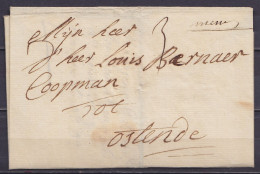 Mijn heer
menin
d'heer Louis Bernaer
3
Coopman
tot
ostende